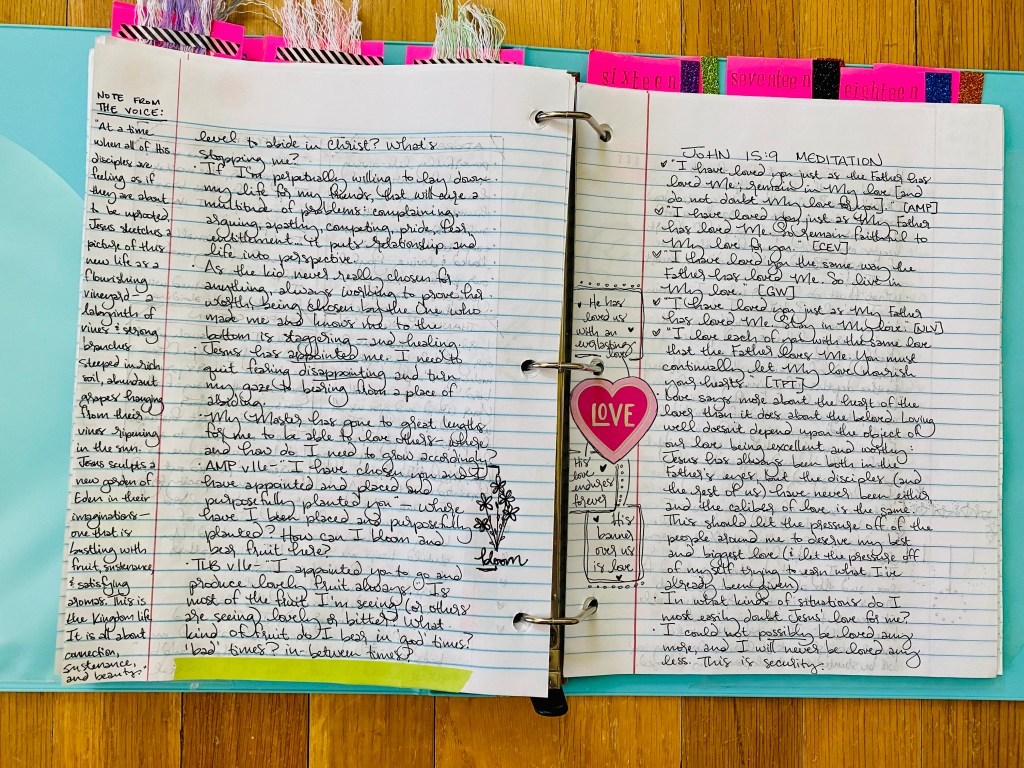 sixteen
seventeen
eighteen
NOTE FROM
THE VOICE:
"At a time
when all of His
disciples are
feeling as if
they are about
to be uprooted,
Jesus sketches a
picture of this
new life as a
flourishing
vineyard - a
labyrinth of
vines & strong
branches
steeped in rich
soil, abundant
grapes hanging
from their
vines ripening
in the sun.
Jesus sculpts a
new garden of
Eden in their
imaginations -
one that is
bustling with
fruit, sustenance,
& satisfying
aromas. This is
the Kingdom life.
It is all about
connection,
sustenance,
and beauty."
level to abide in Christ? What's
stopping me?
· If I'm perpetually willing to lay down
my life for my friends, that will cure a
multitude of problems: complaining,
arguing, apathy, competing, pride, fear,
entitlement. It puts relationship and
life into perspective.
· As the kid never really chosen for
anything, always working to prove her
worth, being chosen by the One who
made me and knows me to the
bottom is staggering - and healing.
· Jesus has appointed me. I need to
quit fearing disappointing and turn
my gaze to bearing from a place of
abiding.
· My Master has gone to great lengths
for me to be able to love others - where
and how do I need to grow accordingly?
· AMP v16 - "I have chosen you and I
have appointed and placed and
purposefully planted you" - where
have I been placed and purposefully
planted? How can I bloom and
bear fruit here?
· TLB v16 - "I appointed you to go and
produce lovely fruit always." Is
most of the fruit I'm seeing (or others
are seeing) lovely or bitter? What
kind of fruit do I bear in 'good' times?
'bad' times? in-between times?
bloom
JOHN 15:9 MEDITATION
"I have loved you just as the Father has
loved Me; remain in My love [and
do not doubt My love for you]." [AMP]
"I have loved you, just as My Father
has loved Me. So remain faithful to
My love for you." [CEV]
"I have loved you the same way the
Father has loved Me. So live in
My love." [GW]
"I have loved you just as My Father
has loved Me. Stay in My love." [NLV]
"I love each of you with the same love
that the Father loves Me. You must
continually let My love nourish
your hearts." [TPT]
· Love says more about the heart of the
lover than it does about the beloved. Loving
well doesn't depend upon the object of
our love being excellent and worthy:
Jesus has always been both in the
Father's eyes, but the disciples (and
the rest of us) have never been either
and the caliber of love is the same.
This should let the pressure off of the
people around me to deserve my best
and biggest love (& let the pressure off
of myself trying to earn what I've
already been given).
· In what kinds of situations do I
most easily doubt Jesus' love for me?
· I could not possibly be loved any
more, and I will never be loved any
less. This is security.
He has
loved us
with an
everlasting
love
LOVE
His
love
endures
forever
His
banner
over us
is love